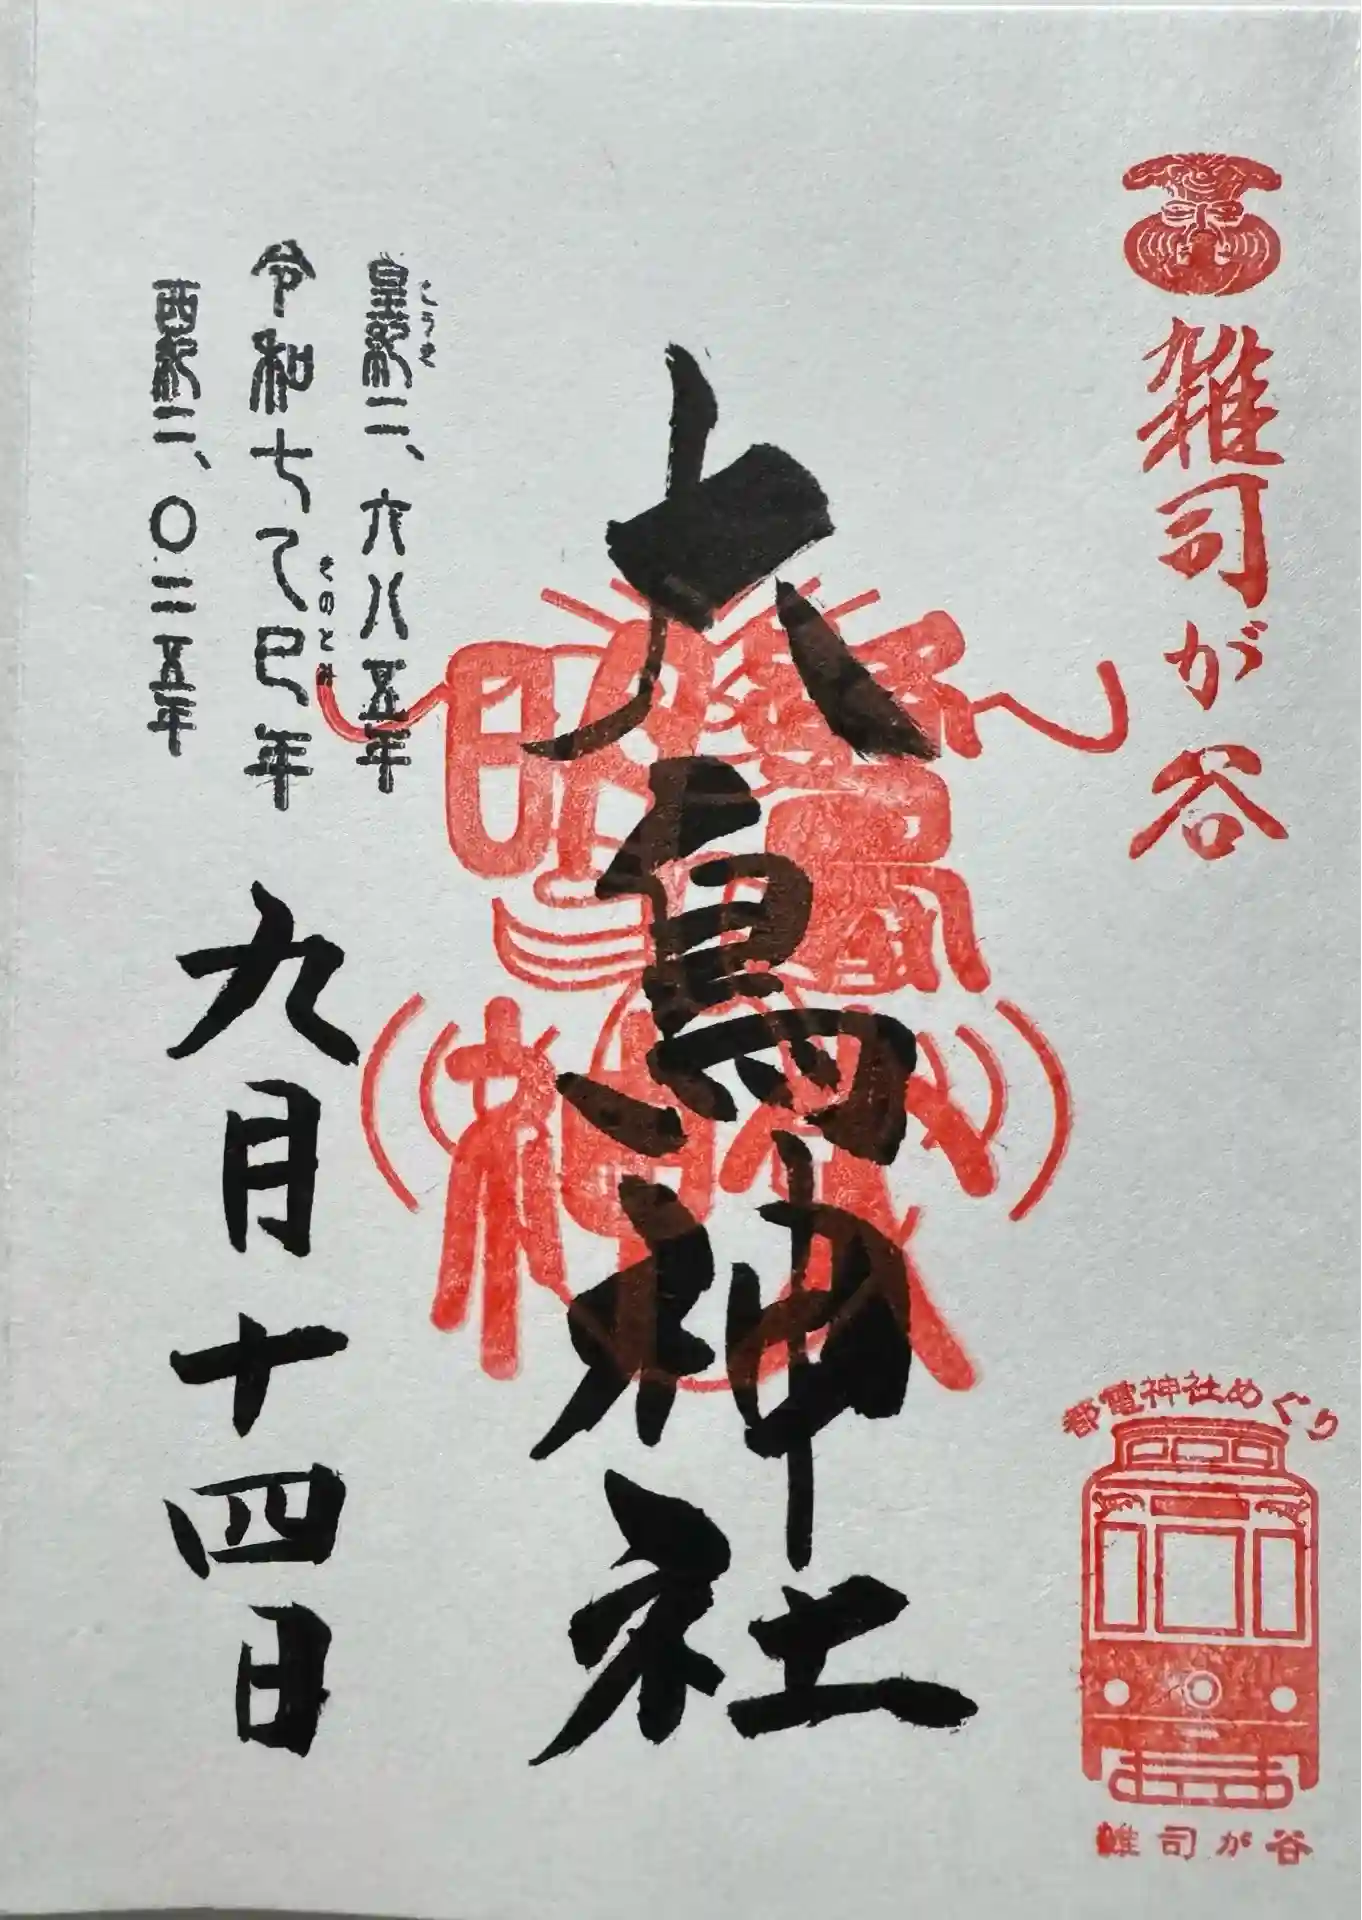 雑司が谷
大鳥神社
皇紀二、六八五年
こうき
令和七乙巳年
きのとみ
西紀二、〇二五年
九月十四日
都電神社めぐり
雑司が谷